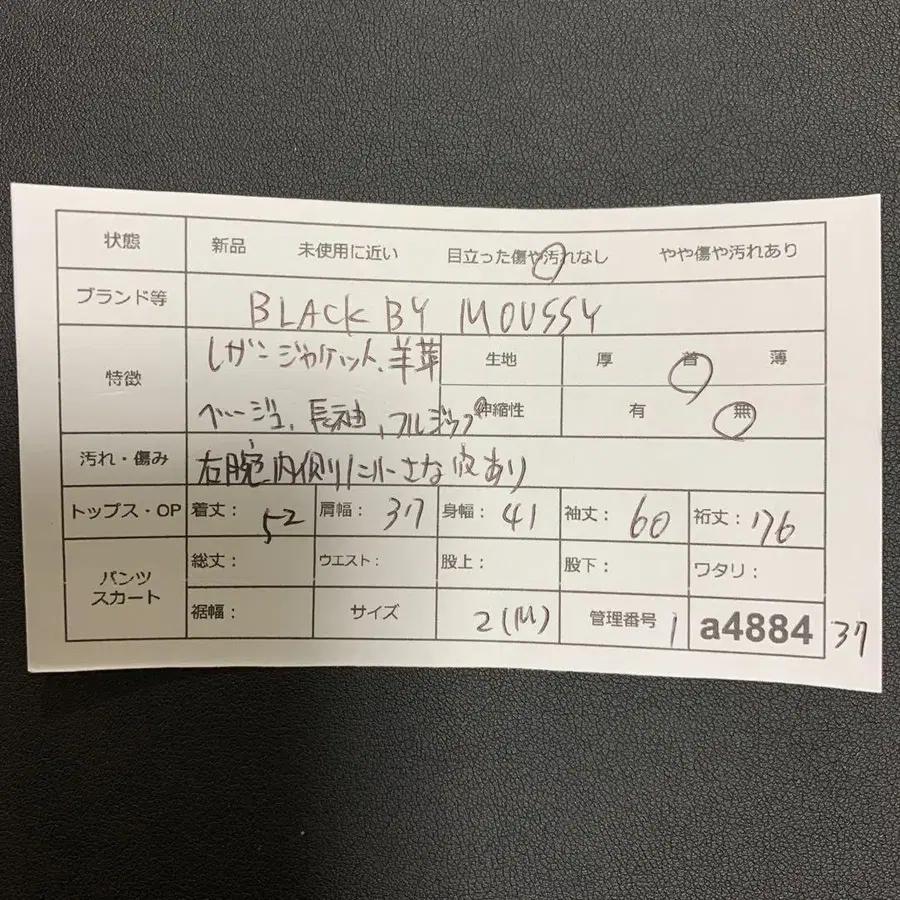 状態 新品 未使用に近い 目立った傷や汚れなし やや傷や汚れあり
ブランド等 BLACK BY MOUSSY
特徴 レザージャケット、羊革 生地 厚 普 薄
ベージュ、長袖、フルジップ 伸縮性 有 無
汚れ・傷み 右腕内側に小さな あり
トップス・OP 着丈: 52 肩幅: 37 身幅: 41 袖丈: 60 裄丈: 76
パンツ スカート 総丈: ウエスト: 股上: 股下: ワタリ:
裾幅: サイズ 2(M) 管理番号 1 a4884 37